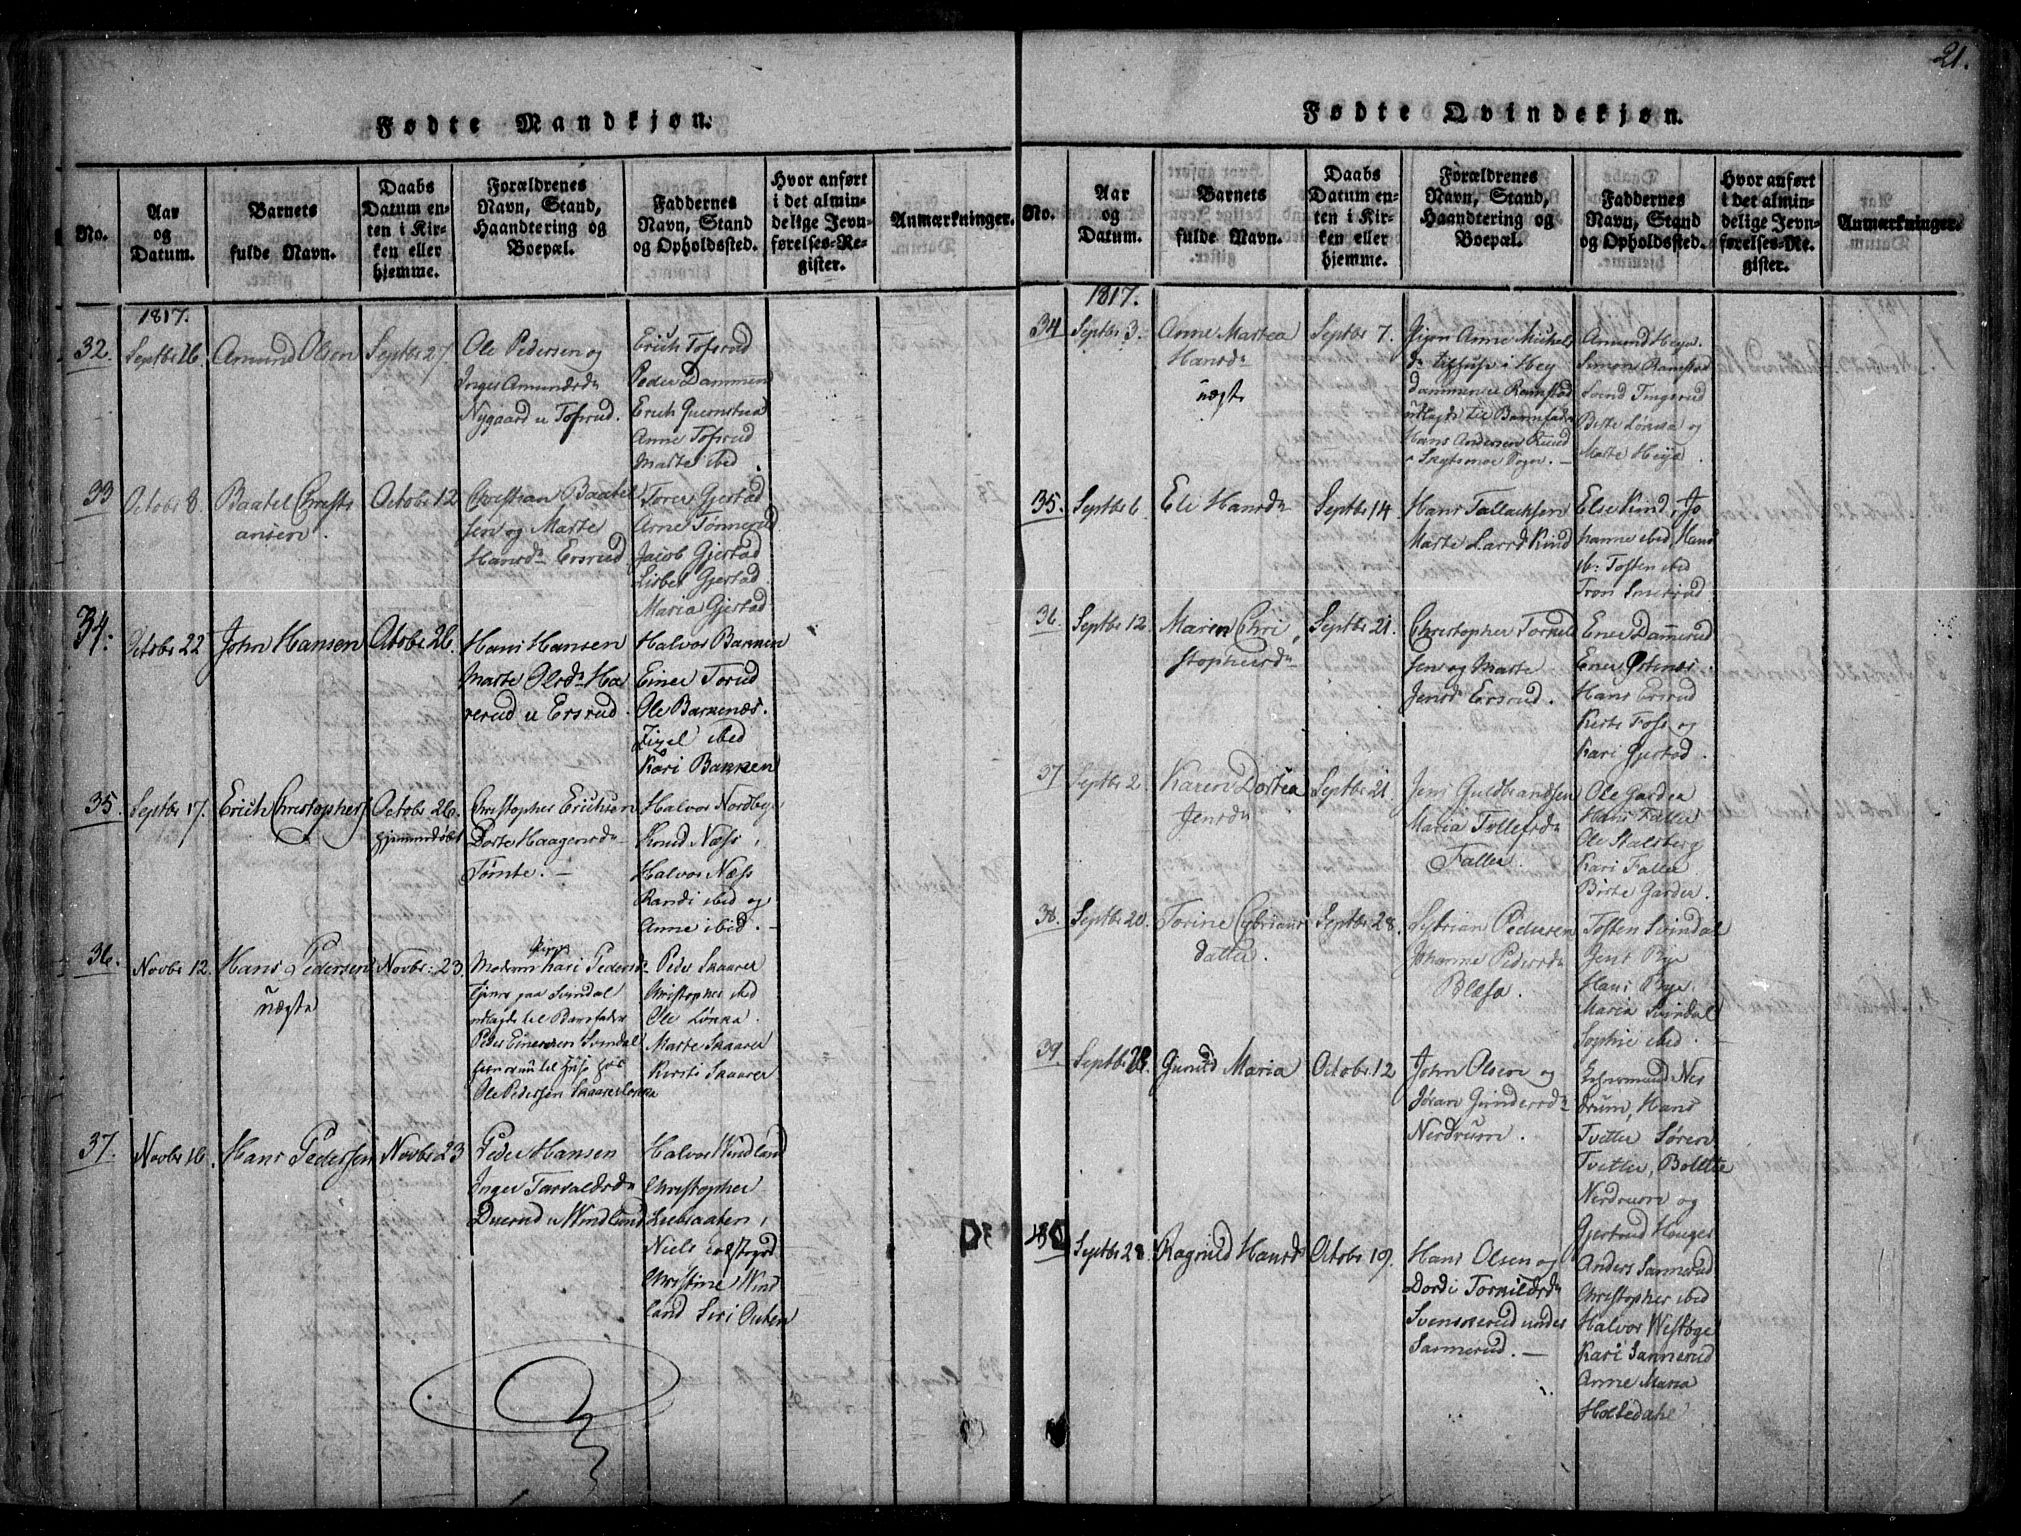 21.
Fødte Mandkjøn.
No.
Aar og Datum.
Barnets fulde Navn.
Daabs Datum enten i Kirken eller hjemme.
Forældrenes Navn, Stand, Haandtering og Boepæl.
Faddernes Navn, Stand og Opholdssted.
Hvor anført i det almindelige Jevnførelses-Register.
Anmærkninger.
1817.
32.
Septbr 26
Amund Olsen
Septbr 27
Ole Pedersen og
Inger Amundsdr
Nygaard u Tofsrud.
Erich Tofsrud
Peder Dammen
Erich
Anne Tofsrud
Marte ibid.
33
Octobr 8.
Baatel Christi
ansen.
Octobr 12
Christian Baatel
sen og Marte
Hansdr Ersrud
Tore Gjestad
Arne Tonnerud
Jacob Gjestad
Lisbet Gjestad
Maria Gjestad
34.
Octobr 22
John Hansen
Octobr 26.
Hans Hansen
Marte Olsdr Ha
rerud u Ersrud.
Halvor Bakken
Einer Torud
Ole Barkenæs.
Zizel ibid
Kari Bakken
35
Septbr 17.
Erich Christophers
Octobr 26.
hjemmedøbt
Christopher Erichsen
Dorte Haagensdr
Tømte. –
Halvor Nordby
Knud Næss,
Halvor Næss
Randi ibid og
Anne ibid. –
36.
Novbr 12.
Hans Pedersen
uægte
Novbr: 23.
Moderen Pige Kari Pedersdr
tjener paa Svindal
udlagde til Barnefader
Peder Einersen Svindal
Ole Pedersen Skaarer Løkka
Peder Skaarer
Christopher ibid
Ole Løkka.
Marte Skaarer
Kirsti Skaarer
37.
Novbr 16.
Hans Pedersen
Novbr 23
Peder Hansen
Inger Tarvaldsdr
Duerud u Windlund
Halvor Windland
Christopher
Liebraaten,
Niels
Christine Wind
land Siri Outen
Fødte Qvindekjøn.
No.
Aar og Datum.
Barnets fulde Navn.
Daabs Datum enten i Kirken eller hjemme.
Forældrenes Navn, Stand, Haandtering og Boepæl.
Faddernes Navn, Stand og Opholdssted.
Hvor anført i det almindelige Jevnførelses-Register.
Anmærkninger.
1817.
34
Septbr 3.
Anne Martea
Hansdr
uægte
Septbr 7.
Pigen Anne Michels
dr tilhuse i Hey
dammen u Ramstad
udlagde til Barnfader
Hans Andersen Ruud
i Sogn. –
Amund Heyer
Simon Ramstad
Svend Tingsrud
Birte Lønna og
Marte Heye
35.
Septbr 6
Eli Hansdr
Septbr 14
Hans Tallachsen
Marte Larsd Kind
Else Kind, Jo
hanne ibid, Hans
ib: Tosten ibid
Tron Smerud
36.
Septbr 12.
Maren Chri
stophersdr
Septbr 21.
Christopher Torkel
sen og Marte
Jensdr Ersrud.
Ener Dammerud
Ener Østenes.
Hans Ersrud
Kirsti Foss og
Kari Gjestad
37
Septbr 2
Karen Dortea
Jensdr
Septbr 21
Jens Guldbrandsen
Maria Tollefsdr
Faller.
Ole Garder
Hans Faller
Ole Stalsberg
Kari Faller
Birte Garder.
38.
Septbr 20.
Torine Cybrians
datter.
Septbr 28.
Sybrian Pedersen
Johanne Pedersdr
Blæsa.
Tosten Svindal
Jens Bye
Hans Bye
Maria Svindal
Sophie ibid. –
39
Septbr 28.
Gunild Maria
Octobr 12
John Olsen og
Jøran Gundersdr
Nerdrum.
Ner
drum, Hans
Tvetter Søren
Tvetter, Bolette
Nerdrum og
Gjertrud Hauger
40
Septbr 28.
Ragnild Hansdr
Octobr 19.
Hans Olsen og
Dordi Torkildsdr
Svenskerud under
Sannerud. –
Anders Sannerud
Christopher ibid
Halvor Westbye
Kari Sannerud
Anne Maria
Holtedahl